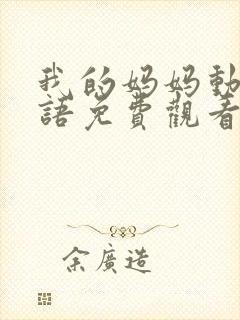 我的妈妈動
語免費觀看
余廣造